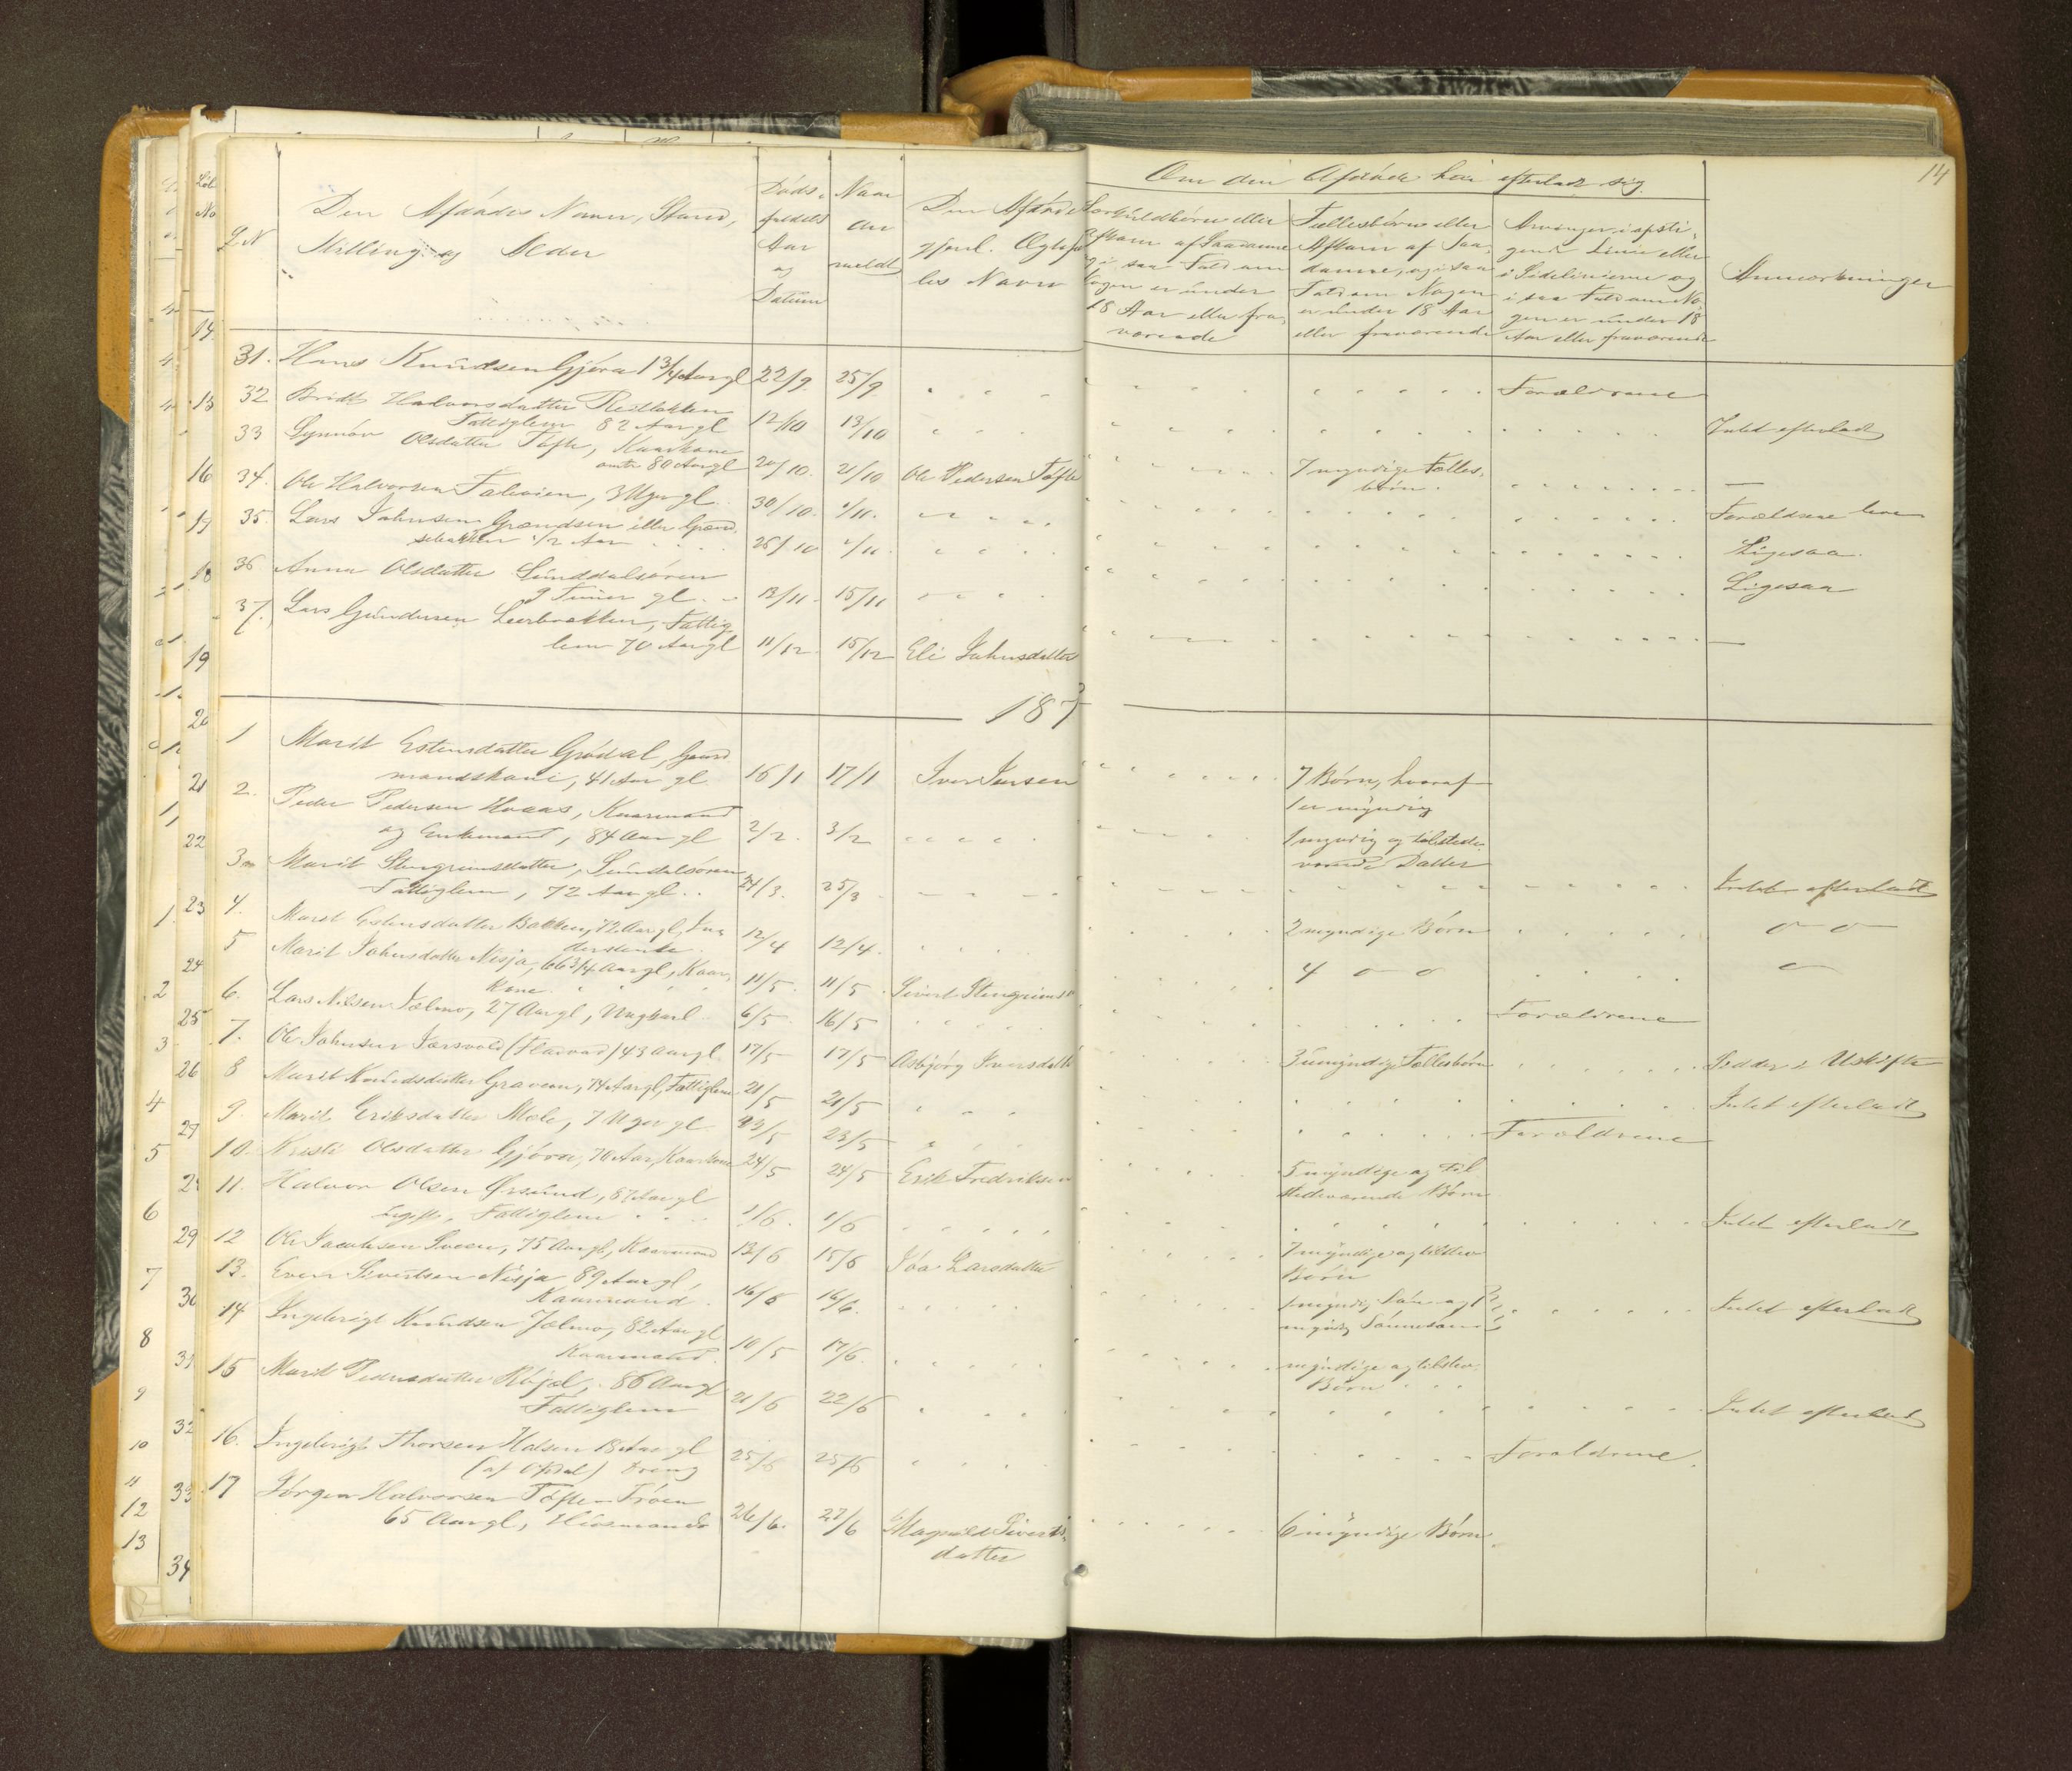 14
Om den Afdøde har efterladt sig
L N
Den Afdødes Navn, Stand,
Stilling og Alder
Døds-
faldets
Aar
og
Datum
Naar
an
meldt
Den Afdødes
gjenl. Ægtefæl
les Navn
Særkuldbørn eller
Afkom af Saadanne
og i saa Fald om
Nogen er under
18 Aar eller fra-
værende
Fællesbørn eller
Afkom af Saa-
danne, og i saa
Fald om Nogen
er under 18 Aar
eller fraværende
Arvinger i opsti-
gende Linie eller
i Sidelinierne og
i saa Fald om No-
gen er under 18
Aar eller fraværende
Anmærkninger
31. Hans Knudsen Gjøra 1 3/4 Aar gl 22/9. 25/9 Forældrene
32 Bridt Halvorsdatter
Fattiglem 82 Aar gl 12/10 13/10 Intet efterladt
33 Synnøv Olsdatter Tøfte, Kaarkone
omtr 80 Aar gl 20/10. 21/10 Ole Pedersen Tøfte 7 myndige Fælles-
børn.
34. Ole Halvorsen 3 Uger gl. 30/10. 1/11. Forældrene leve
35. Lars Johnsen Grændsen eller Grænd
sebakken 1/2 Aar 26/10 1/11 Ligesaa.
36 Anna Olsdatter Sunddalsøren
9 Timer gl. 13/11. 15/11 Ligesaa
37. Lars Gundersen Leerbakken, Fattig
lem 70 Aar gl 11/12. 15/12 Eli Johnsdatter
187
1 Marit Estensdatter Grødal, Gaard
mandskone, 41 Aar gl. 16/1 17/1 Iver Iversen 7 Børn, hvoraf
1 er myndig
2. Peder Pedersen Hoaas, Kaarmand
og Enkemand, 84 Aar gl 2/2. 3/2 1 myndig og tilstede-
værende Datter
3 Marit Stengrimsdatter, Sundalsøren
Fattiglem, 72 Aar gl. 24/3. 25/3 Intet efterladt
4. Marit Estensdatter Bakken, 72 Aar gl, Inn
derstente. 12/4 12/4. 2 myndige Børn
5 Marit Johnsdatter Nisja, 66 3/4 Aar gl, Kaar-
kone. 11/5. 11/5 Sivert Stengrimsen 4
6. Lars Nilsen Jælmo, 27 Aar gl, Ungkarl 6/5 16/5 Forældrene
7. Ole Johnsen Jærsvold (Fladvad) 43 Aar gl. 17/5 17/5 Asbjørg Iversdatter 3 umyndige Fællesbørn Sidder i Uskifte
8 Marit Knudsdatter Graven, 74 Aar gl, Fattiglem 21/5 21/5 Intet efterladt
9. Marit Eriksdatter Mæle, 7 Uger gl 23/5 23/5 Forældrene
10. Kristi Olsdatter Gjøra, 70 Aar, Kaarkone 24/5 24/5 Erik Fredriksen 5 myndige og til
stedeværende Børn
11. Halvor Olsen Ørsund, 87 Aar gl
ugift, Fattiglem 1/6. 1/6 Intet efterladt
12 Ole Jacobsen Sveen, 75 Aar gl, Kaarmand 13/6 15/6 Larsdatter 7 myndige og tilstev
Børn
13. Even Sivertsen Nisja 89 Aar gl,
Kaarmand. 16/6 16/6. 1 myndig Søn og 1
myndig Sønnesøn Intet efterladt
14 Ingebrigt Knudsen Jælmo, 82 Aar gl
Kaarmand. 10/5 17/6. myndige og tilstev.
Børn
15 Marit Pedersdatter 86 Aar gl
Fattiglem 21/6 22/6 Intet efterladt
16. Ingebrigt Thorsen Halsen 18 Aar gl
(af Opdal) Dreng 25/6 25/6 Forældrene.
17 Jørgen Halvorsen Tøfte-Trøen
65 Aar gl, Huusmand 26/6. 27/6 Magnild Siverts-
datter 6 myndige Børn.